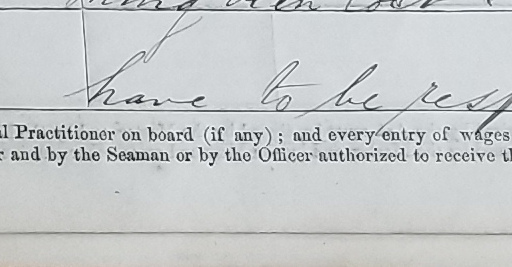 have to be resp
l Practitioner on board (if any); and every entry of wages
and by the Seaman or by the Officer authorized to receive th